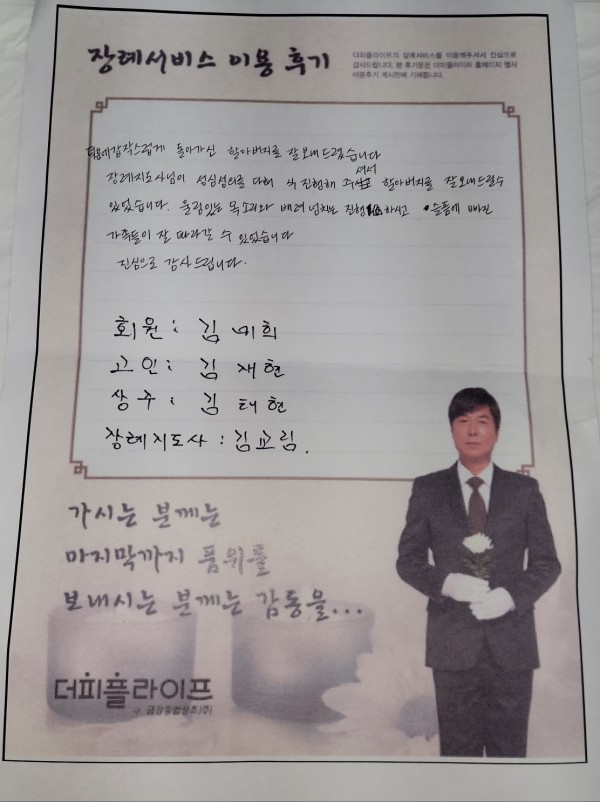 장례서비스 이용 후기
더피플라이프의 장례서비스를 이용해주셔서 진심으로
감사드립니다. 본 후기문은 더피플라이프 홈페이지 행사
이용후기 게시판에 기재합니다.
갑작스럽게 돌아가신 할아버지를 잘 보내드렸습니다
장례지도사님이 성심성의를 다해 식 진행해 주셔서 할아버지를 잘 보내드릴 수
있었습니다. 울림있는 목소리와 배려 넘치는 진행 하시고 슬픔에 빠진
가족들이 잘 따라갈 수 있었습니다
진심으로 감사드립니다.
회원 : 김미희
고인 : 김재현
상주 : 김태현
장례지도사 : 김교림.
가시는 분께는
마지막까지 품위를
보내시는 분께는 감동을...
더피플라이프
구. 금강종합상조(주)